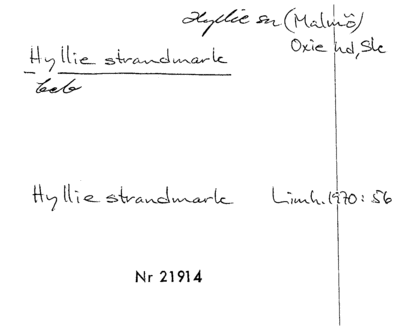 Hyllie sn (Malmö)
Oxie hd, Sk
Hyllie strandmark
beb
Hyllie strandmark Limh. 1970: 56
Nr 21914